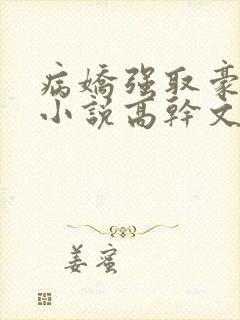 病嬌强取豪
小説高幹文
姜蜜